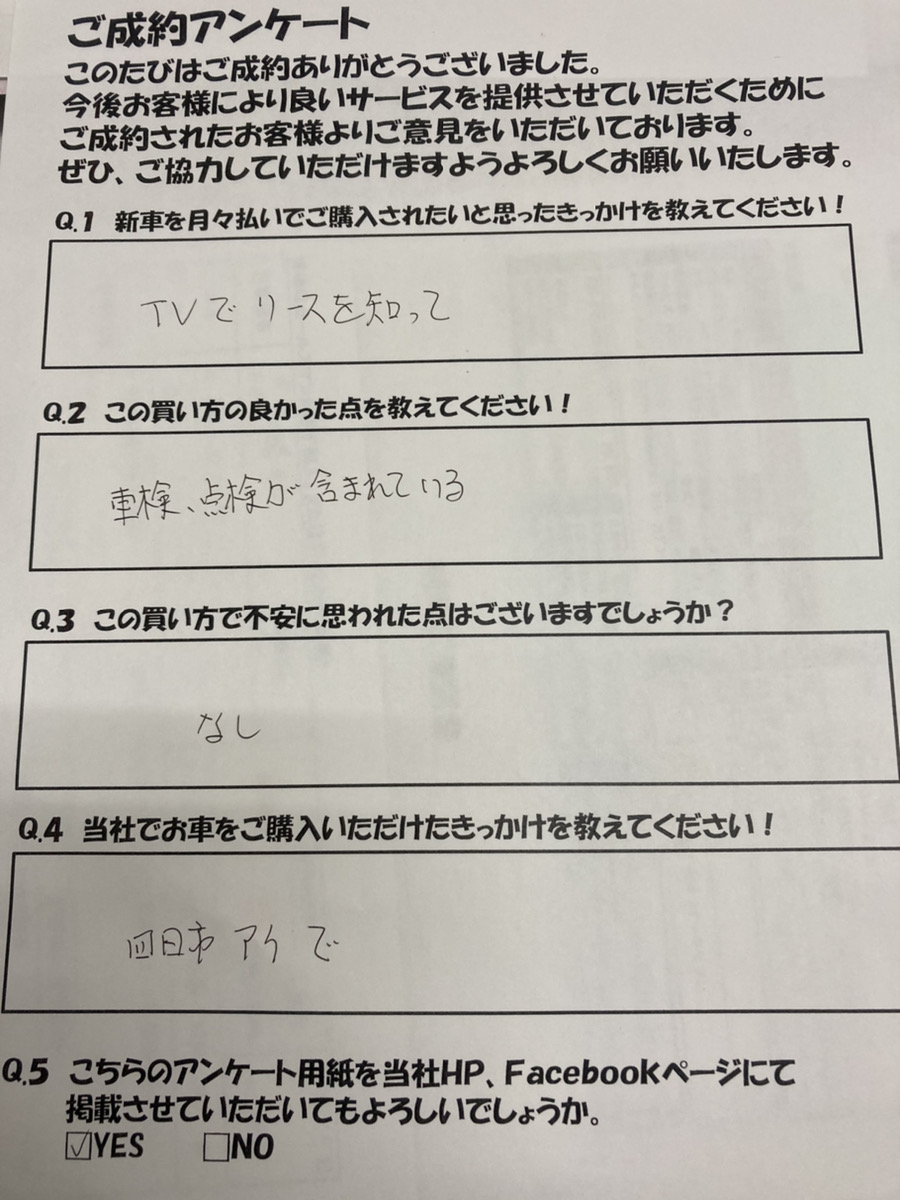 ご成約アンケート
このたびはご成約ありがとうございました。
今後お客様により良いサービスを提供させていただくために
ご成約されたお客様よりご意見をいただいております。
ぜひ、ご協力していただけますようよろしくお願いいたします。
Q.1 新車を月々払いでご購入されたいと思ったきっかけを教えてください!
TVで リースを知って
Q.2 この買い方の良かった点を教えてください!
車検、点検が 含まれている
Q.3 この買い方で不安に思われた点はございますでしょうか?
なし
Q.4 当社でお車をご購入いただけたきっかけを教えてください!
四日市 アケ で
Q.5 こちらのアンケート用紙を当社HP、Facebookページにて
掲載させていただいてもよろしいでしょうか。
☑YES □NO